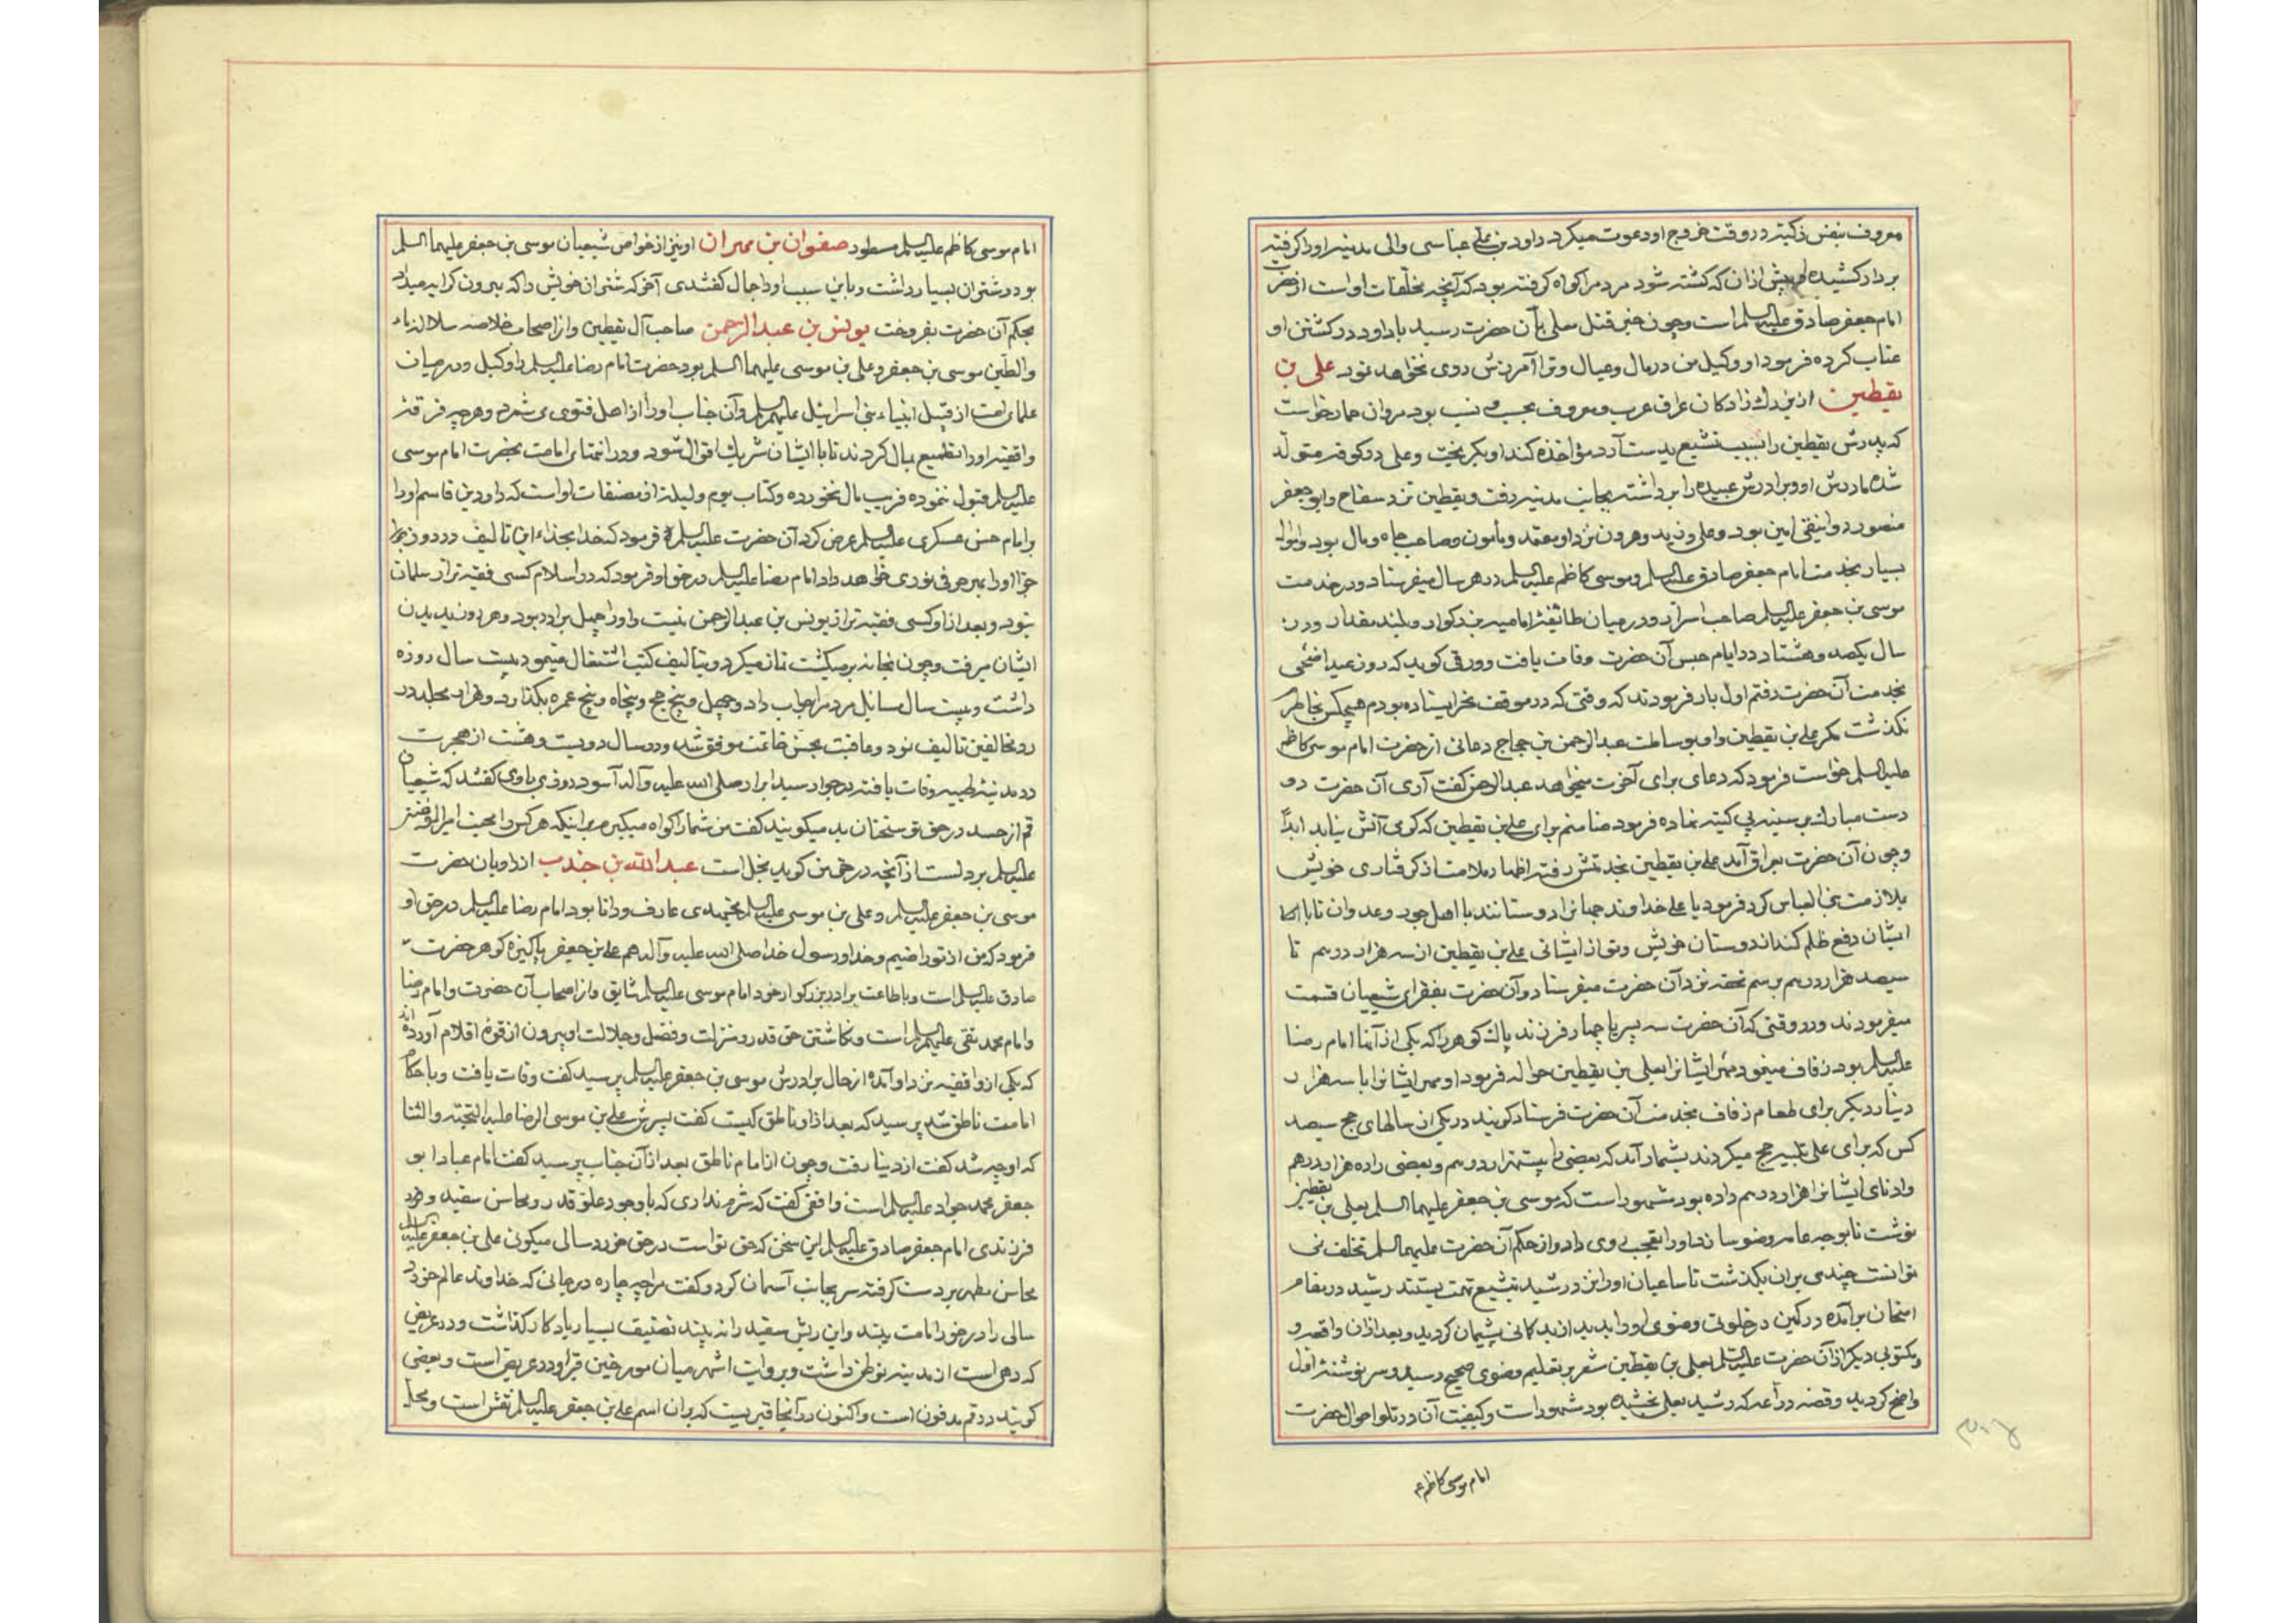 معروف بنفس زکیه در وقت خروج او دعوت میکرد داود بن علی عباسی والی مدینه او را کرفته
بردار کشیده پیش از ان که کشته شود مردم را کواه کرفته بود که آنچه مخلفات او است از حضرت
امام جعفر صادق علیه السلم است و چون خبر قتل معلی بآن حضرت رسید با داود در کشتن او
عتاب کرده فرمود او وکیل من در مال و عیال و ترا آمرزش روی نخواهد نمود علی بن
یقطین از بزرك زادکان عراق عرب و معروف بحسب و نسب بود مروان حمار خواست
که پدرش یقطین را بسبب تشیع بدست آرد مؤاخذه کند او بکریخت و علی در کوفه متولد
شده مادرش او و برادرش عبیده را برداشته بجانب مدینه رفت و یقطین نزد سفاح و ابو جعفر
منصور دوانیقی امین بود و علی نزد مهدی و هرون نزد او معتمد و مأمون و صاحب جاه و مال بود و اموال
بسیار بخدمت امام جعفر صادق علیه السلم و موسی کاظم علیه السلم در هر سال میفرستاد و در خدمت
موسی بن جعفر علیه السلم صاحب اسرار و در میان طائفه امامیه بزرکوار و بلند مقدار و در
سال یکصد و هشتاد در ایام حبس آن حضرت وفات یافت و ورقی کوید که روز عید اضحی
بخدمت آن حضرت رفتم اول بار فرمودند که وقتی که در موقف نحر ایستاده بودم هیچکس بخاطرم
نکذشت مکر علی بن یقطین و او بوساطت عبد الرحمن بن حجاج دعائی از حضرت امام موسی کاظم
علیه السلم خواست فرمود که دعای برای آخرت میخواهد عبد الرحمن کفت آری آن حضرت دو
دست مبارك بر سینه بی کینه نهاده فرمود ضامنم برای علی بن یقطین که کرمی آتش نیابد ابداً
و چون آن حضرت بعراق آمد علی بن یقطین بخدمتش رفته اظهار ملامت از کرفتاری خویش
بملازمت بنی العباس کرد فرمود یا علی خداوند جهانرا دوستانند با اهل جور و عدوان تا با
ایشان دفع ظلم کند از دوستان خویش و تو از ایشانی علی بن یقطین از سه هزار درهم تا
سیصد هزار درهم برسم تحفه نزد آن حضرت میفرستاد و آن حضرت بفقرای شیعیان قسمت
میفرمودند و در وقتی که آن حضرت سه پسر یا چهار فرزند پاك کوهر را که یکی از آنها امام رضا
علیه السلم بود زفاف مینمود مهر ایشانرا بعلی بن یقطین حواله فرمود او مهر ایشانرا با سه هزار
دینار دیکر برای طعام زفاف بخدمت آن حضرت فرستاد کویند در یکی از سالهای حج سیصد
کس که برای علی تلبیه حج میکردند بشمار آمد که بعضی را بیست هزار درهم و بعضی را ده هزار درهم
و ادنای ایشانرا هزار درهم داده بود مشهور است که موسی بن جعفر علیهما السلم بعلی بن یقطین
نوشت تا بوجه عامه وضو سازد او را تعجب روی داد و از حکم آن حضرت علیهما السلم تخلف نمی
توانست چندی بران بکذشت تا ساعیان او را نزد رشید بتشیع تهمت بستند رشید در مقام
امتحان برآمده در کمین در خلوتی وضوی او را بدید از بدکمانی پشیمان کردید و بعد از ان واقعه
مکتوبی دیکر از آن حضرت علیه السلم بعلی بن یقطین مشعر بر تعلیم وضوی صحیح رسید و سر نوشته اول
واضح کردید و قصه دراعه که رشید بعلی بخشیده بود مشهور است و کیفیت آن در تلو احوال حضرت
امام موسی کاظم ع
امام موسی کاظم علیه السلم مسطور صفوان بن مهران او نیز از خواص شیعیان موسی بن جعفر علیهما السلم
بود و شتران بسیار داشت و باین سبب او را جمال کفتندی آخر که شتران خویش را که بهرون کرایه میداد
بحکم آن حضرت بفروخت یونس بن عبد الرحمن صاحب آل یقطین و از اصحاب خلاصه سلاله الماء
والطین موسی بن جعفر و علی بن موسی علیهما السلم بود حضرت امام رضا علیه السلم را وکیل و در میان
علمای امت از قبیل انبیاء بنی اسرائیل علیهم السلم و آن جناب او را از اهل فتوی می شمرد و هر چه فرقه
واقفیه او را تطمیع بمال کردند تا با ایشان شریك اقوال شود و در انتهای امامت بحضرت امام موسی
علیه السلم قبول ننموده فریب مال نخورده و کتاب یوم و لیلة از مصنفات او است که داود بن قاسم او را
بامام حسن عسکری علیه السلم عرض کرد آن حضرت علیه السلم فرمود که خدا بجذاء این تالیف در روز جزا
جزا او را بهر حرفی نوری خواهد داد امام رضا علیه السلم در حق او فرمود که در اسلام کسی فقیه تر از سلمان
نبود و بعد از او کسی فقیه تر از یونس بن عبد الرحمن نیست و او را چهل برادر بود و هر روز بدیدن
ایشان میرفت و چون بخانه برمیکشت نماز میکرد و بتالیف کتب اشتغال مینمود بیست سال روزه
داشت و بیست سال مسایل مردمرا جواب داد و چهل و پنج حج و پنجاه و پنج عمره بکذارد و هزار مجلد در
رد مخالفین تالیف نمود و عاقبت بحسن خاتمت موفق شد و در سال دویست و هشت از هجرت
در مدینه طیبه وفات یافته در جوار سید ابرار صلی الله علیه و آله آسود روزی باوی کفتند که شیعیان
قم از حسد در حق تو سخنان بد میکویند کفت من شما را کواه میکیرم بر اینکه هر کس را محبت امیر المؤمنین
علیه السلم بر دلست از آنچه در حق من کوید بحل است عبد الله بن جندب از راویان حضرت
موسی بن جعفر علیه السلم و علی بن موسی علیه السلم مجتهدی عارف و دانا بود امام رضا علیه السلم در حق او
فرمود که من از تو راضیم و خدا و رسول خدا صلی الله علیه و آله هم علی بن جعفر پاکیزه کوهر حضرت
صادق علیه السلم است و باطاعت برادر بزرکوار خود امام موسی علیه السلم شایق و از اصحاب آن حضرت و امام رضا
و امام محمد تقی علیهم السلم است و نکاشتن حق قدر و منزلت و فضل و جلالت او بیرون از قوه اقلام آورده اند
که یکی از واقفیه نزد او آمده از حال برادرش موسی بن جعفر علیه السلم پرسید کفت وفات یافت و باحکام
امامت ناطق شد پرسید که بعد از او ناطق کیست کفت پسرش علی بن موسی الرضا علیه التحیة والثنا
که او چه شد کفت از دنیا رفت و چون از امام ناطق بعد از آن جناب پرسید کفت امام عباد ابو
جعفر محمد جواد علیه السلم است واقفی کفت که شرم نداری که با وجود علو قدر و محاسن سفید و خود
فرزندی امام جعفر صادق علیه السلم این سخن که حق تواست در حق خورد سالی میکوئی علی بن جعفر علیه السلم
محاسن مطهر بدست کرفته سر بجانب آسمان کرد و کفت مرا چه چاره در زمانی که خداوند عالم خورد
سالی را در خور امامت بیند و این ریش سفید را نه بیند تصنیف بسیار یادکار کذاشت و در عریض
که دهی است از مدینه توطن داشت و بروایت اشهر میان مورخین قبر او در عریض است و بعضی
کویند در قم مدفون است و اکنون در آنجا قبریست که بران اسم علی بن جعفر علیه السلم نقش است و محل